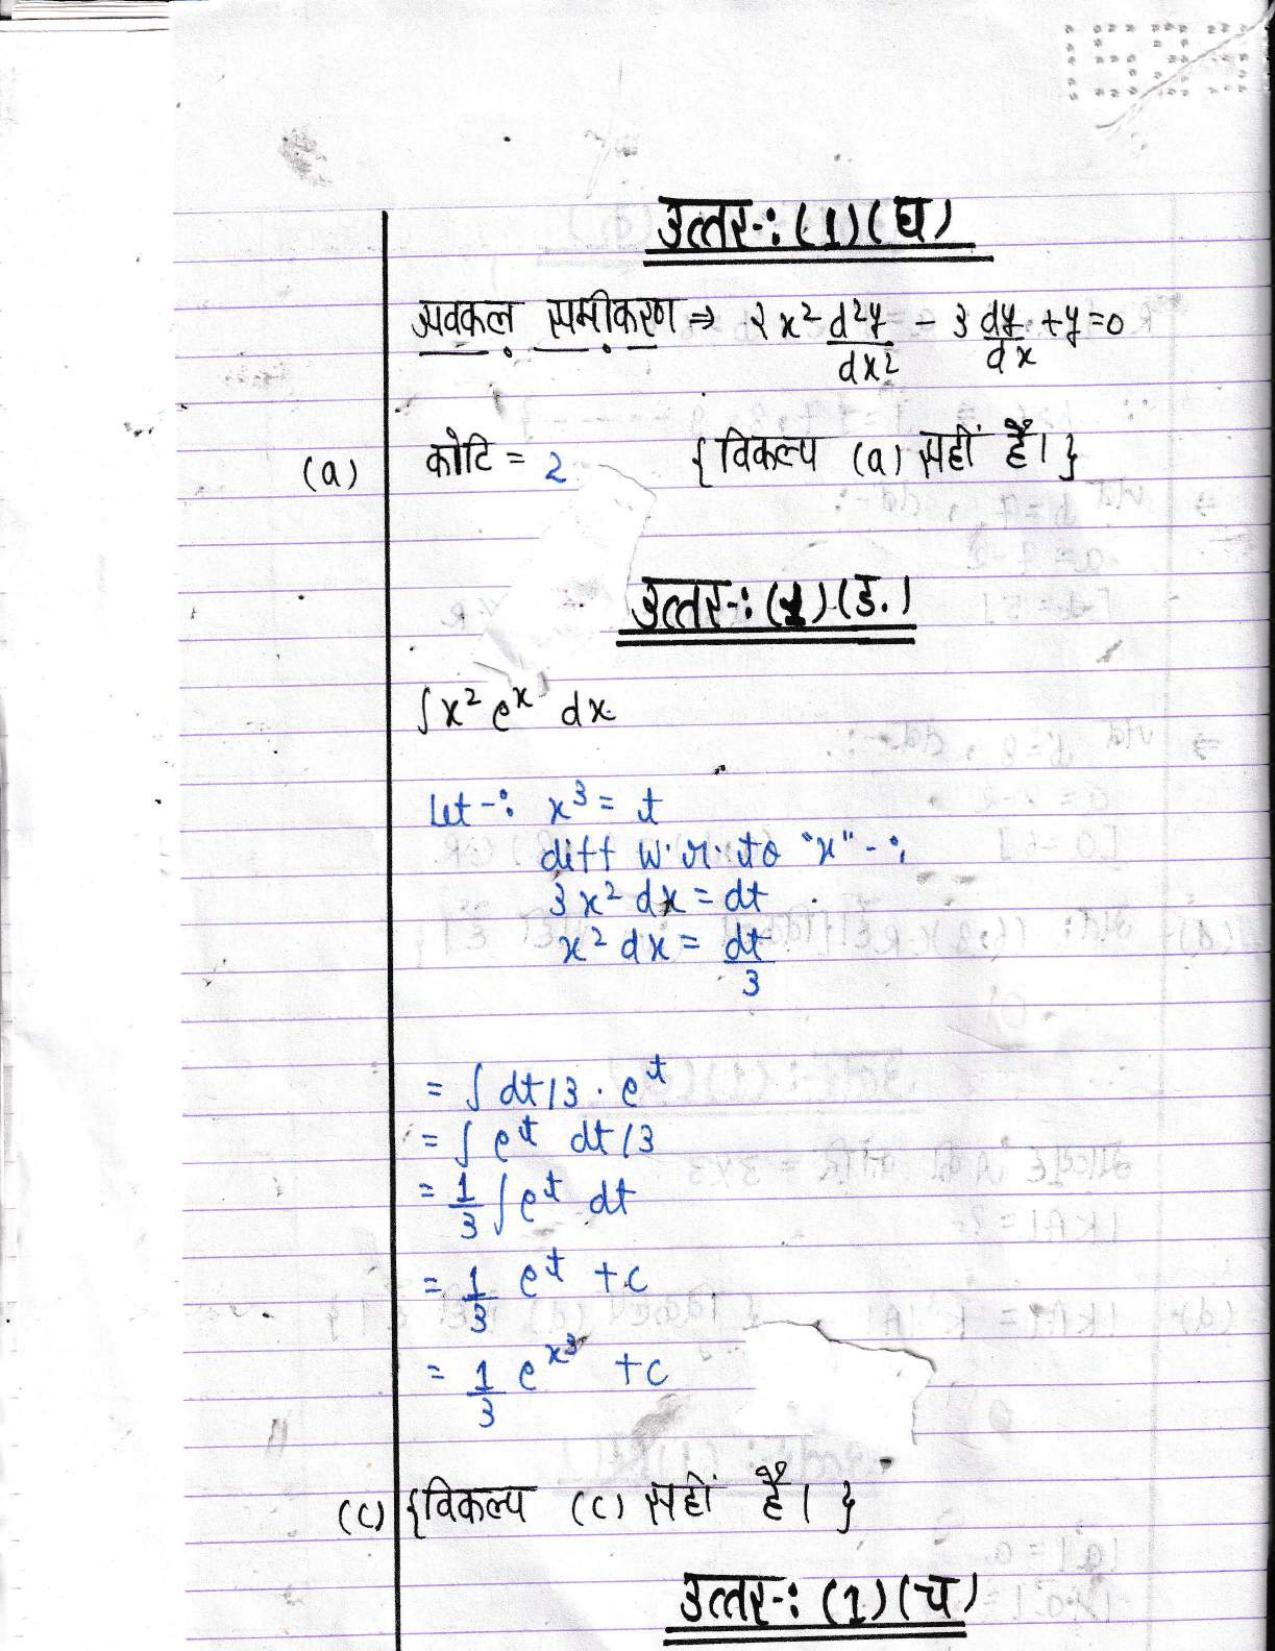 उत्तर-: (1) (घ)
अवकल समीकरण ⇒ 2x² d²y/dx² - 3 dy/dx + y = 0
(a) कोटि = 2 {विकल्प (a) सहीं हैं।}
उत्तर-: (1) (ड.)
∫x² eˣ dx
Let-: x³ = t
diff w.r.to "x"-:
3x² dx = dt
x² dx = dt/3
= ∫ dt/3 . eᵗ
= ∫ eᵗ dt/3
= 1/3 ∫eᵗ dt
= 1/3 eᵗ + c
= 1/3 e^x³ + c
(c) {विकल्प (c) सहीं हैं।}
उत्तर-: (1) (च)